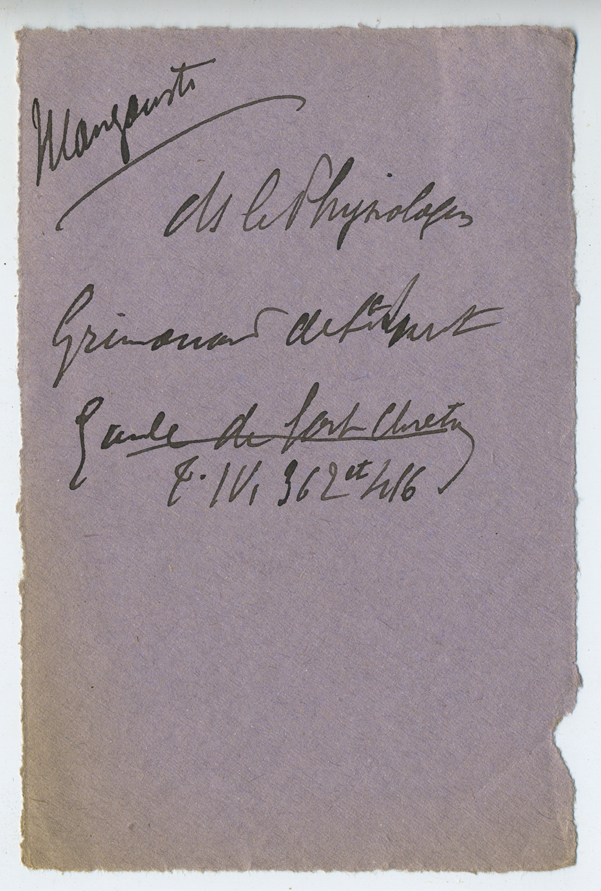 Mangouste
ds le Physiologus
Grimouard de St Laurent
Guide de l'art chrétien
T. IV, 362 et 416